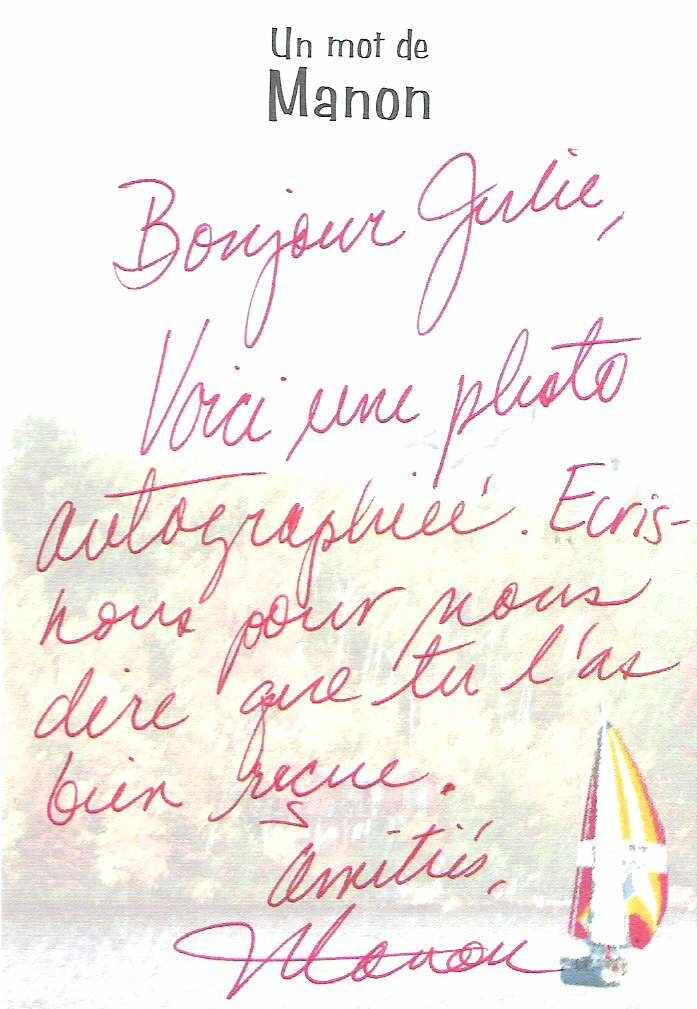 Un mot de
Manon
Bonjour Julie,
Voici une photo
autographiée. Ecris-
nous pour nous
dire que tu l'as
bien reçue.
Amitiés,
Manon